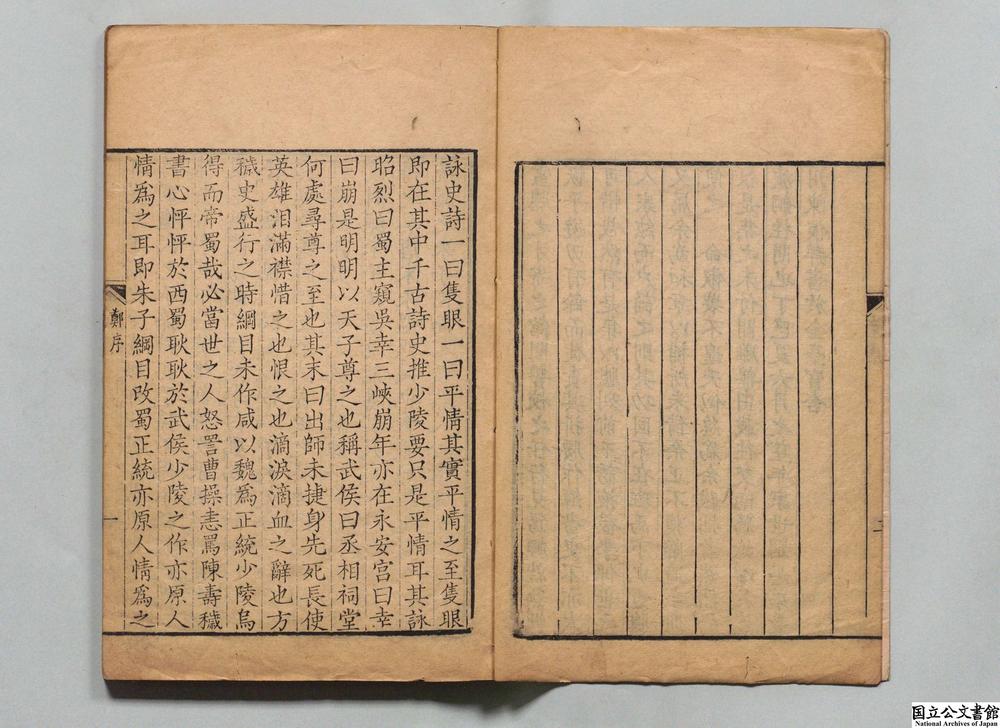 詠史詩一曰隻眼一曰平情其實平情之至隻眼
即在其中千古詩史推少陵要只是平情耳其詠
昭烈曰蜀主窺吳幸三峽崩年亦在永安宮曰幸
曰崩是明明以天子尊之也稱武侯曰丞相祠堂
何處尋尊之至也其末曰出師未捷身先死長使
英雄泪滿襟惜之也恨之也滴淚滴血之辭也方
穢史盛行之時綱目未作咸以魏為正統少陵烏
得而帝蜀哉必當世之人怒詈曹操恚罵陳壽穢
書心怦怦於西蜀耿耿於武侯少陵之作亦原人
情為之耳即朱子綱目改蜀正統亦原人情為之
鄭序
一
二
国立公文書館
National Archives of Japan